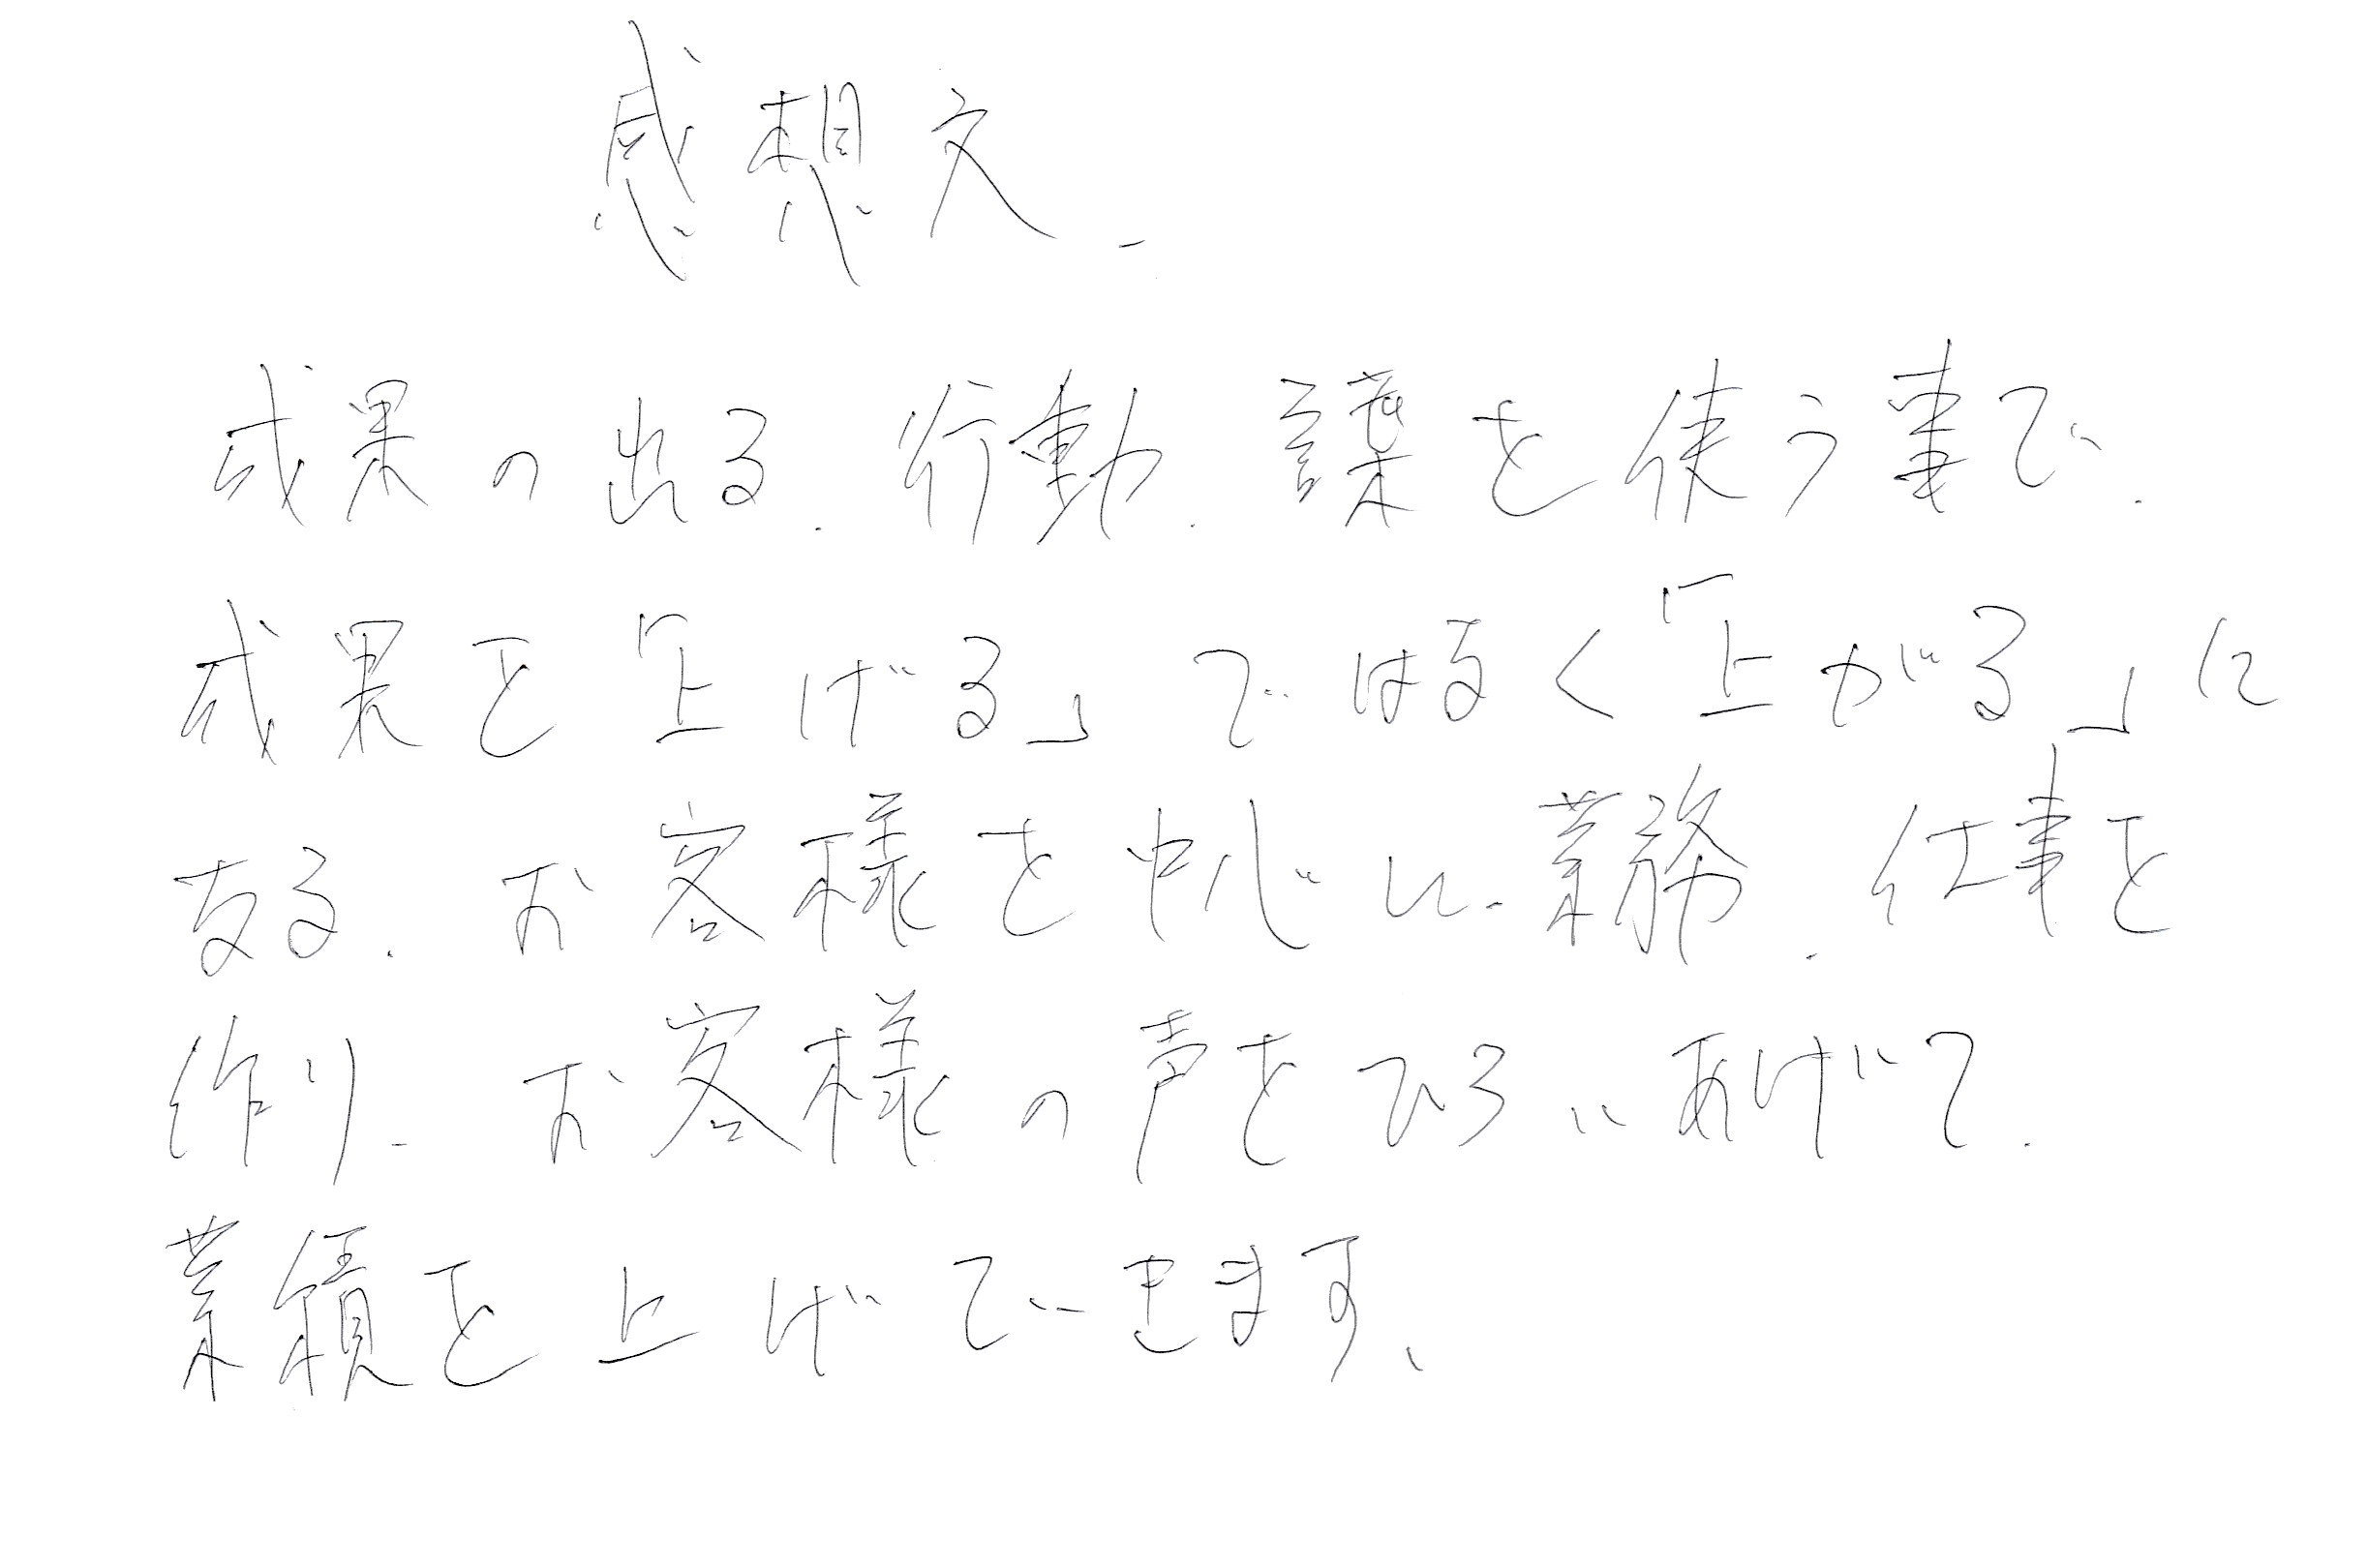 感想文
成果の出る、行動、言葉を使う事で、
成果を「上げる」ではなく「上がる」に
なる、お客様を中心に、業務、仕事を
作り、お客様の声をひろいあげて、
業績を上げていきます、